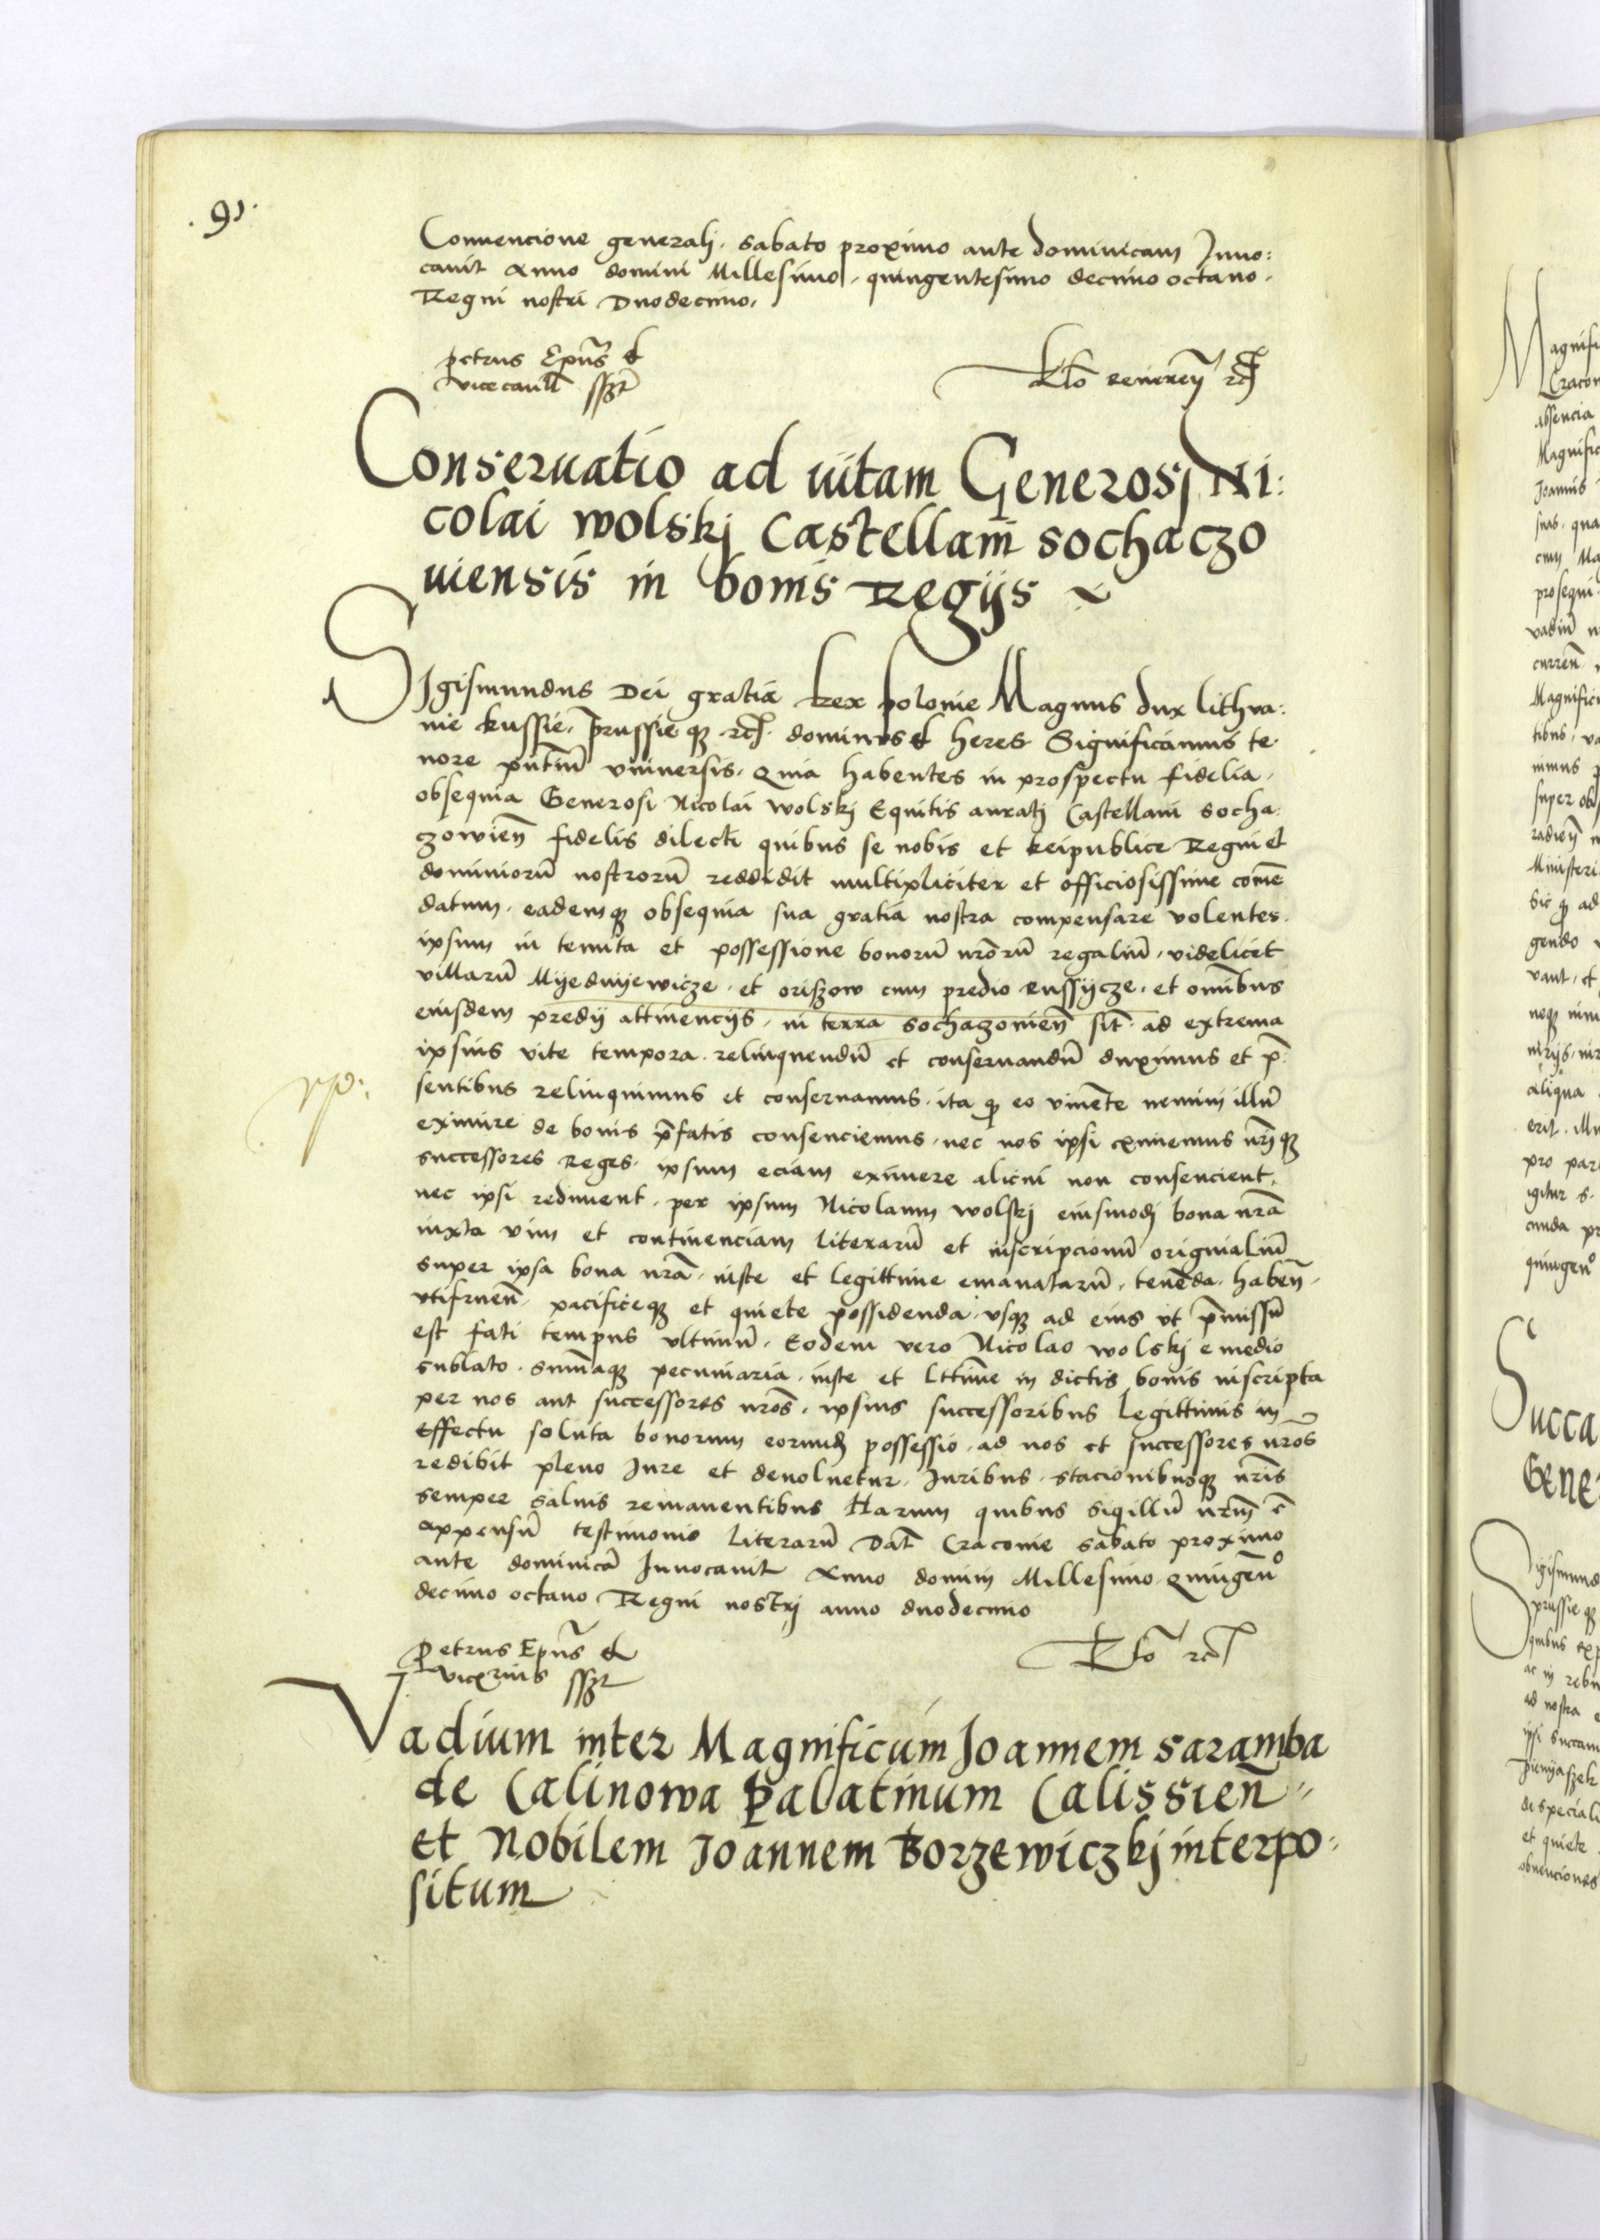 . 91 .
Convencione generalj . sabato proximo ante dominicam Inuo:
cauit Anno domini Millesimo . quingentesimo decimo octauo .
Regni nostri Duodecimo .
petrus Ep̄us et
vicecanc̄ sszt
Rlo
Conseruatio ad uitam Generosj Ni:
colai wolskj Castellanj sochaczo
uiensis in bonis Regijs ~
SIgismundus Dei gratia Rex polonie Magnus dux lithua:
nie Russie . prussieqꝫ rcꝫ . dominus et heres Significamus te
nore pn̄tiū vniuersis . Quia habentes in prospectu fidelia .
obsequia Generosi Nicolai wolskj Equitis auratj Castellani socha
czowieñ fidelis dilecti quibus se nobis et Reipublice Regni et
dominiorū nostrorū reddidit multipliciter et officiosissime comē
datum . eademqꝫ obsequia sua gratia nostra compensare volentes .
ipsum in tenuta et possessione bonorū nrōrū regaliū . videlicet
villarū Myednyewicze . et oriszow cum predio Russycze . et omībus
eiusdem predij attinencijs . in terra sochaczouieñ sit̄ . ad extrema
ipsius vite tempora . relinquendū et conseruandū duximus et p̄
sentibus relinquimus et conseruamus . ita qꝫ eo viuēte nemini illū
eximire de bonis p̄fatis consenciemus . nec nos ipsi eximemus nr̄iqꝫ
successores Reges . ipsum eciam eximere alicui non consencient .
nec ipsi rediment . per ipsum Nicolaum wolskj eiusmodj bona nrā
iuxta vim et continenciam literarū et inscripcionū originaliū
super ipsa bona nrā . iuste et legittime emanatarū . tenēda . habeñ .
vtifrueñ . pacificeqꝫ et quiete possidenda . vsqꝫ ad eius vt p̄missū
est fati tempus vltimū . Eodem vero Nicolao wolskj e medio
sublato . sum̄aqꝫ pecuniaria . iuste et lttime in dictis bonis inscripta
per nos aut successores nrōs . ipsius successoribus legittimis in
effectu soluta bonorum eorundꝫ possessio . ad nos et successores nrōs
redibit pleno Iure et deuoluetur . Iuribus . stacionibusqꝫ nrīs
semper saluis remanentibus Harum quibus sigillū nrm̄ ē
appensū testimonio literarū Dat̄ Cracouie sabato proximo
ante dominicā Inuocauit Anno domini Millesimo . Quingen̄o
decimo octauo Regni nostrj anno duodecimo
Petrus Ep̄us et
vicꝫrius sszt
Rlo rcꝫ
Vadium inter Magnificum Joannem saramba
de Calinowa Palatinum Calissien̄
et Nobilem Joannem Borzewiczkj interpo
situm